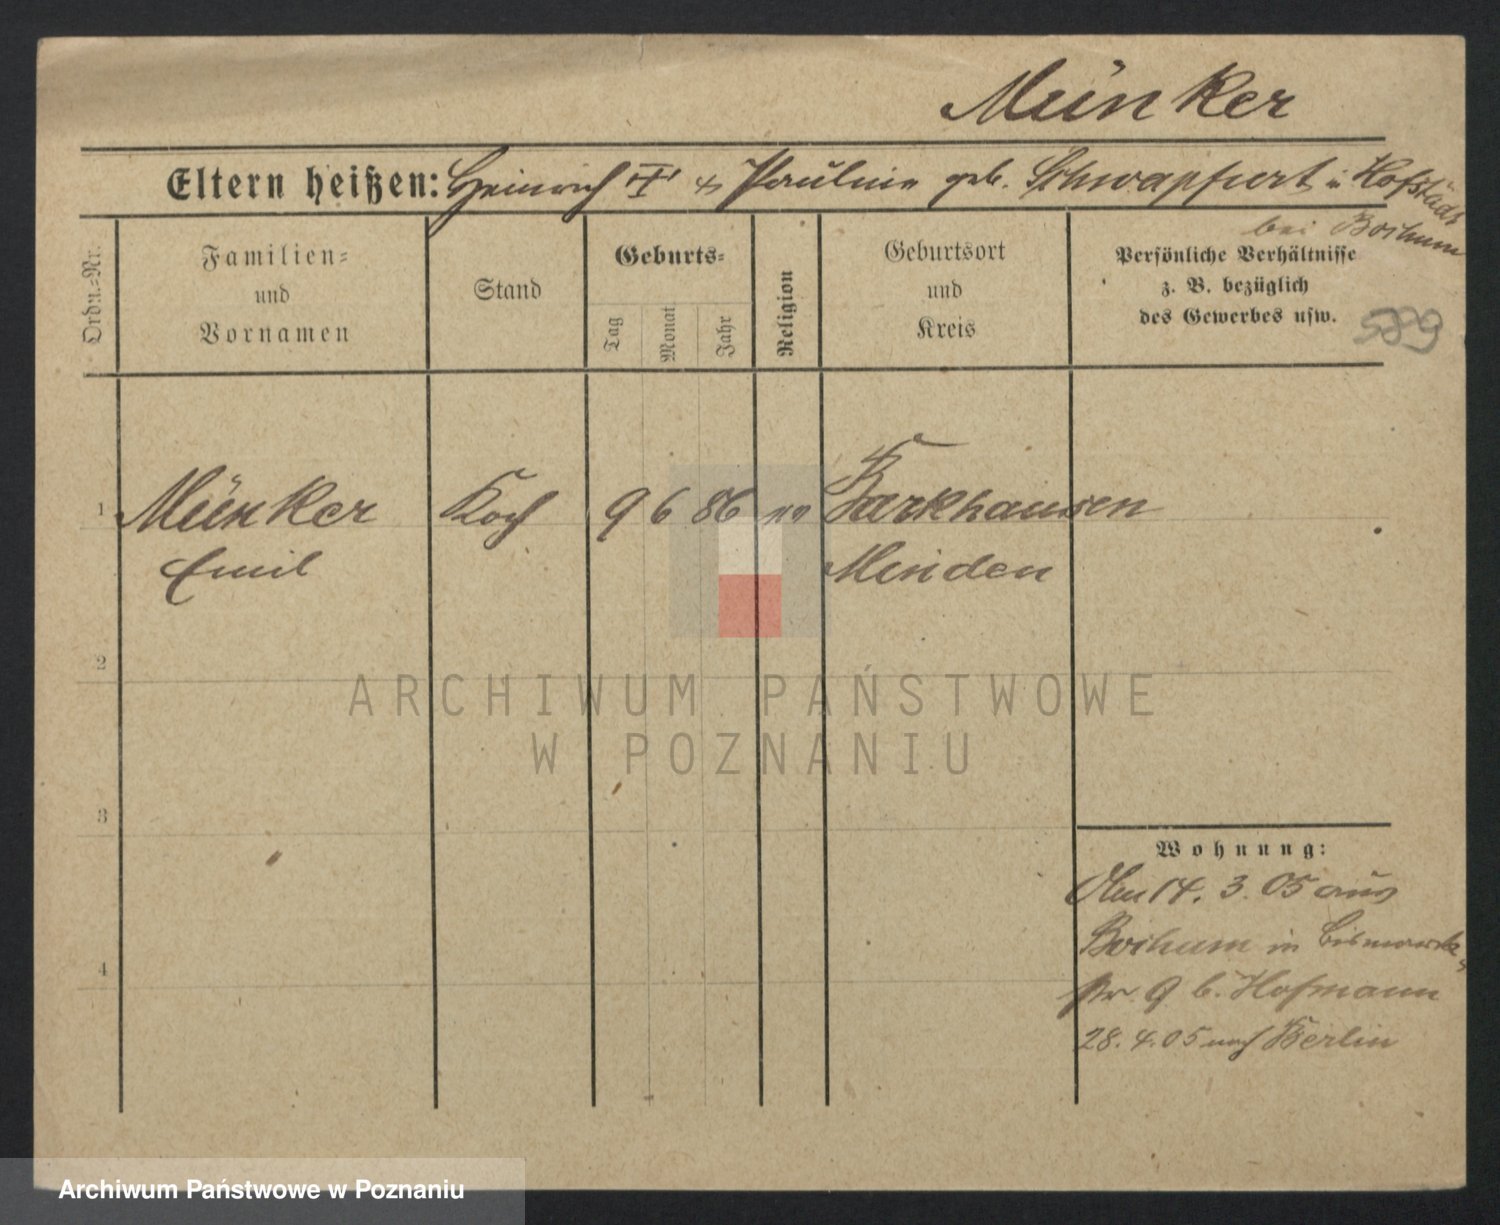 Münker
Eltern heißen: Heinrich & Pauline geb. Schwappfurt in Hofstädt
bei Bochum
Ordn.-Nr.
Familien-
und
Vornamen
Stand
Geburts-
Tag
Monat
Jahr
Religion
Geburtsort
und
Kreis
Persönliche Verhältnisse
z. B. bezüglich
des Gewerbes usw.
589
1 Münker Koch 9 6 86 Barkhausen
Emil Minden
2
ARCHIWUM PAŃSTWOWE
W POZNANIU
3
Wohnung:
14. 3. 05 aus
Bochum in Bismarck
str 9 b. Hofmann
4
28. 4. 05 nach Berlin
Archiwum Państwowe w Poznaniu